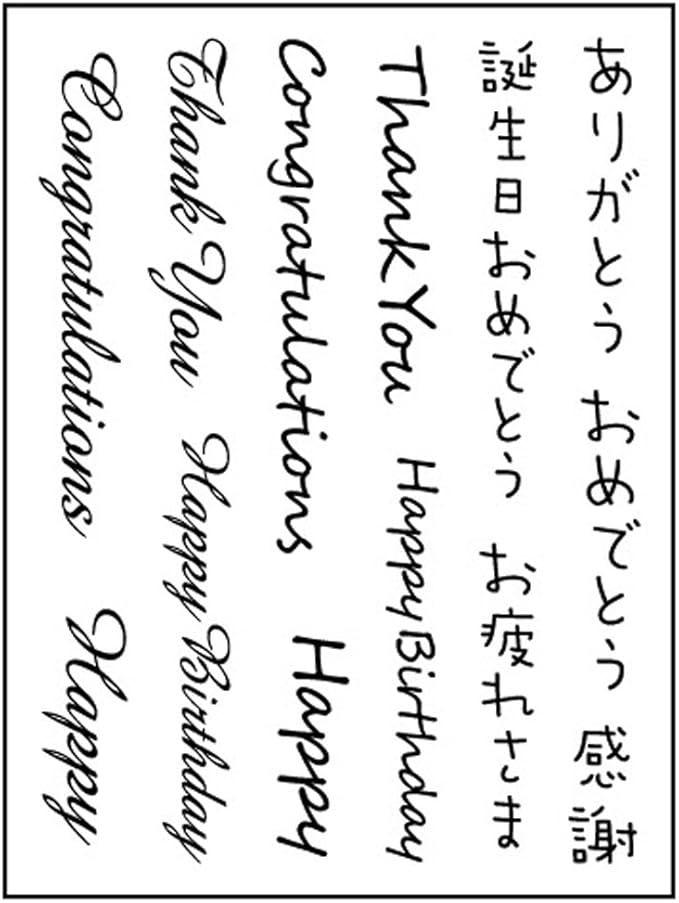 ありがとう おめでとう 感謝
誕生日おめでとう お疲れさま
Thank You Happy Birthday
Congratulations Happy
Thank You Happy Birthday
Congratulations Happy